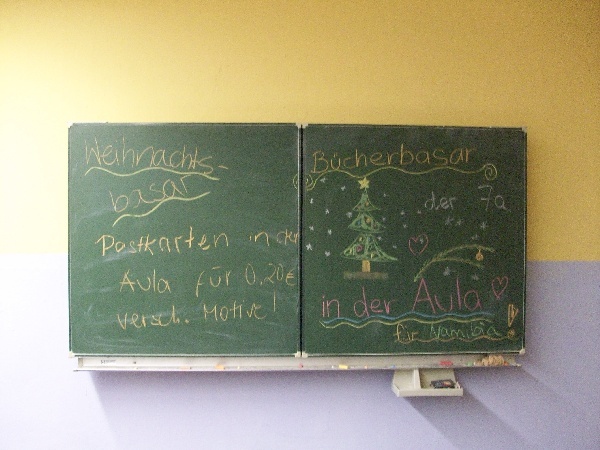 Weihnachts-
basar
Postkarten in der
Aula für 0,20€
versch. Motive!
Bücherbasar
der 7a
in der Aula
für Namibia!